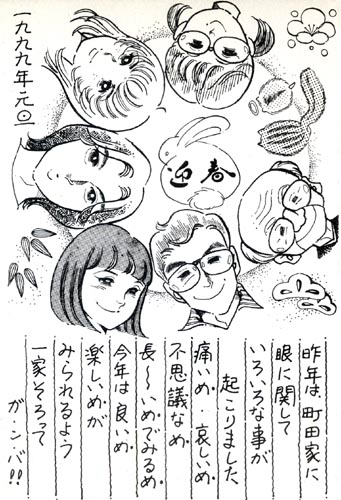 一九九九年元旦
迎春
昨年は、町田家に
眼に関して
いろいろな事が
起こりました
痛いめ・哀しいめ、
不思議なめ、
長〜いめでみるめ。
今年は良いめ、
楽しいめが
みられるよう
一家そろって
ガ・ン・バ!!